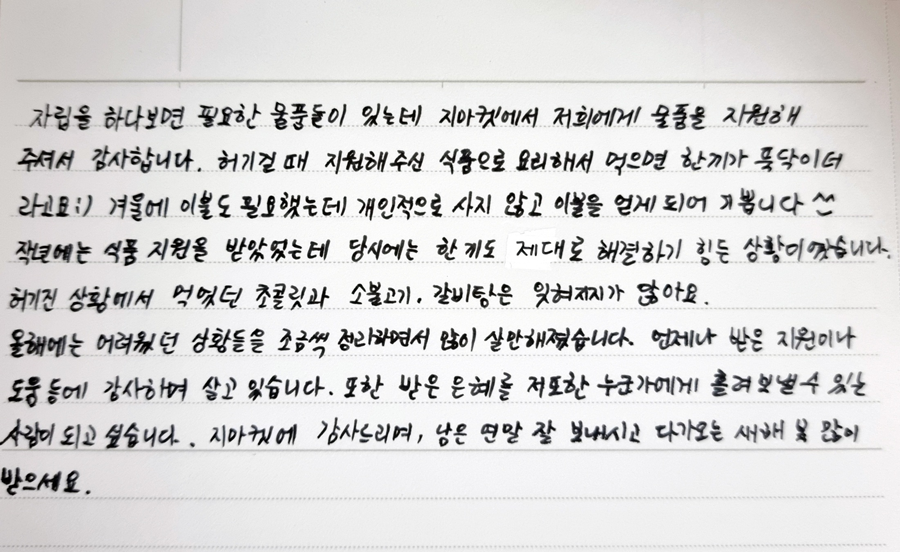 자립을 하다보면 필요한 물품들이 있는데 지마켓에서 저희에게 물품을 지원해
주셔서 감사합니다. 허기질 때 지원해주신 식품으로 요리해서 먹으면 한끼가 뚝딱이더
라고요:) 겨울에 이불도 필요했는데 개인적으로 사지 않고 이불을 얻게 되어 기쁩니다 ^^
작년에는 식품 지원을 받았었는데 당시에는 한 끼도 제대로 해결하기 힘든 상황이였습니다.
허기진 상황에서 먹었던 초콜릿과 소불고기. 갈비탕은 잊혀지지가 않아요.
올해에는 어려웠던 상황들을 조금씩 정리하면서 많이 살만해졌습니다. 언제나 받은 지원이나
도움 등에 감사하며 살고 있습니다. 또한 받은 은혜를 저 또한 누군가에게 흘려보낼 수 있는
사람이 되고 싶습니다. 지마켓에 감사드리며, 남은 연말 잘 보내시고 다가오는 새해 복 많이
받으세요.